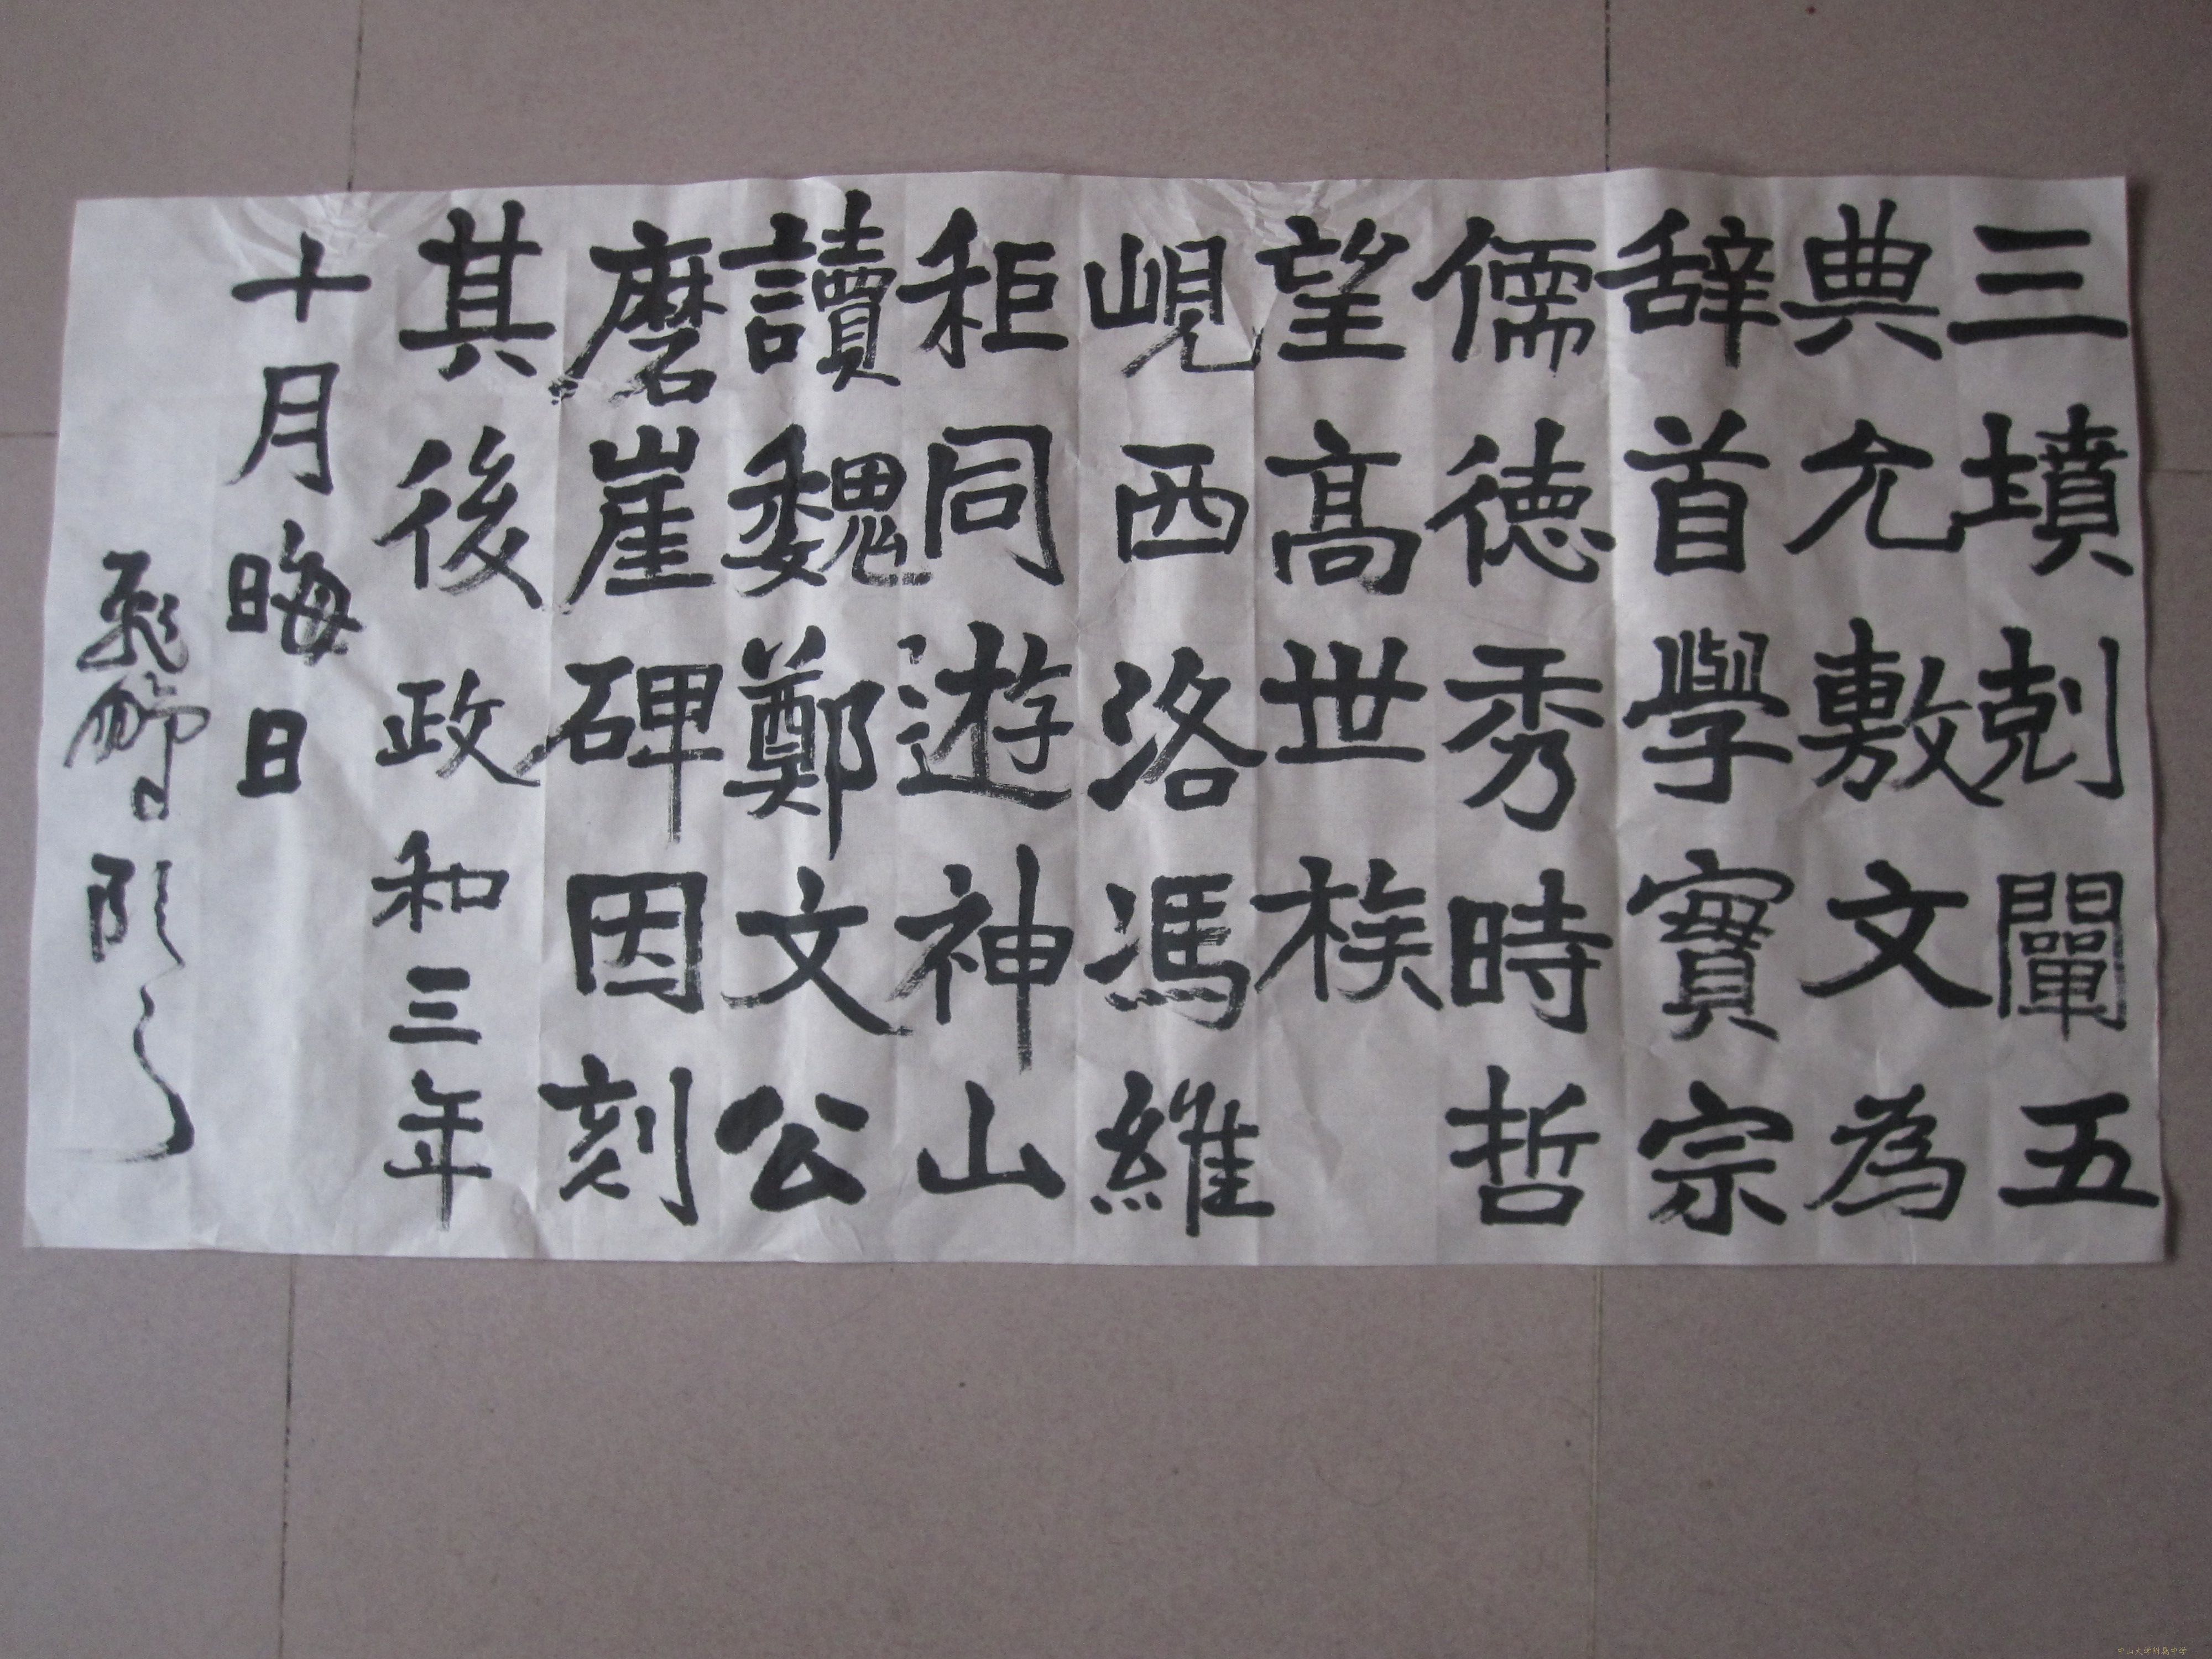 三墳剋闡五
典允敷文為
辞首學寶宗
儒徳秀時哲
望高世族
峴西洛馮維
秬同遊神山
讀魏鄭文公
磨崖碑因刻
其後政和三年
十月晦日
中山大学附属中学